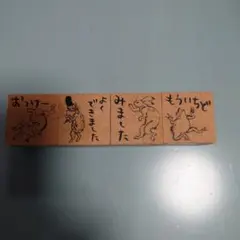 おっけー
よく
できました
みました
もういちど